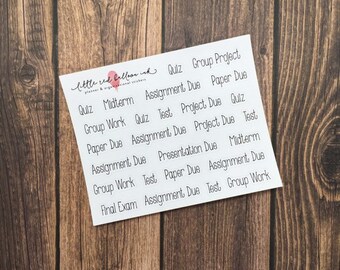 little red balloon ink
planner & organizational stickers
Quiz Group Project
Quiz Midterm Assignment Due Paper Due
Group Work Quiz Test Project Due Quiz
Paper Due Assignment Due Project Due Test
Assignment Due Presentation Due Midterm
Group Work Test Paper Due Assignment Due
Final Exam Assignment Due Test Group Work